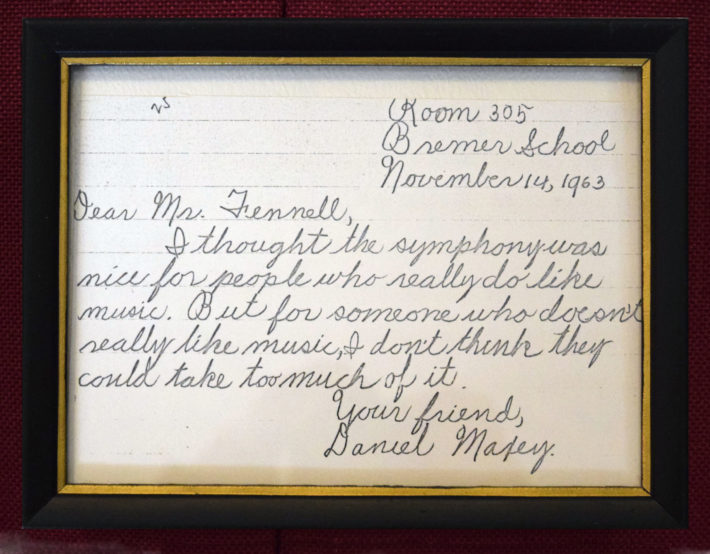 Room 305
Bremer School
November 14, 1963
Dear Mr. Fennell,
I thought the symphony was
nice for people who really do like
music. But for someone who doesn't
really like music, I don't think they
could take too much of it.
Your friend,
Daniel Maxey.